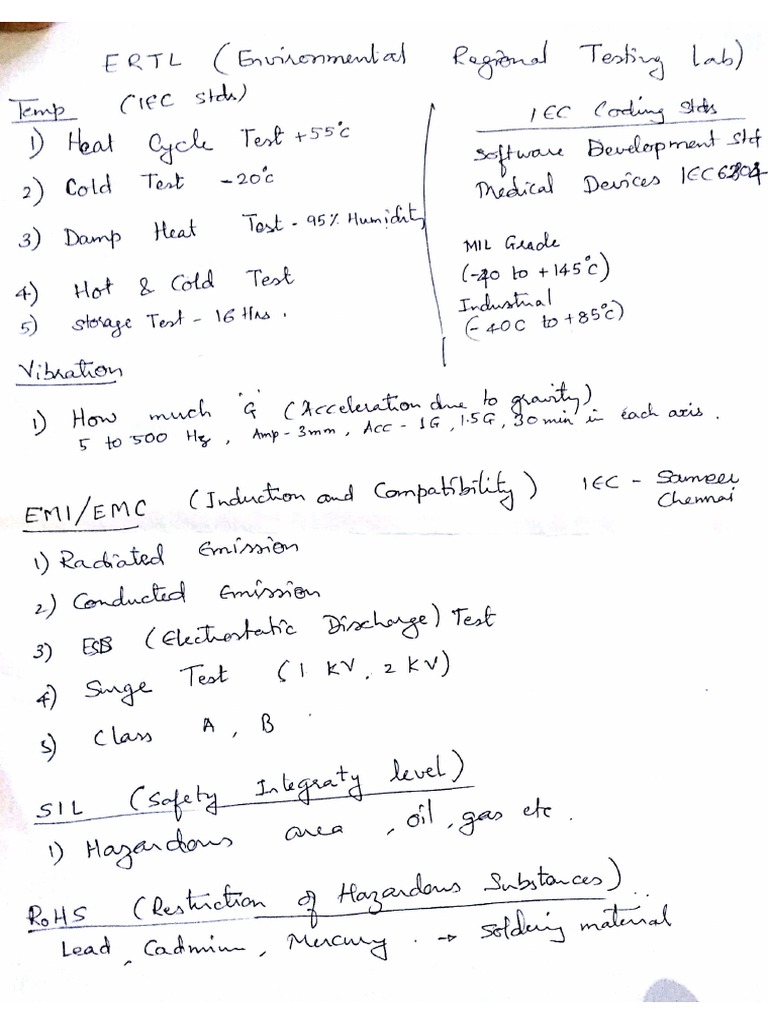 ERTL (Environmental Regional Testing Lab)
Temp (IEC Stds)
1) Heat Cycle Test +55°C
2) Cold Test -20°C
3) Damp Heat Test - 95% Humidity
4) Hot & Cold Test
5) Storage Test - 16 Hrs.
IEC Coding Stds
Software Development Std
Medical Devices IEC
MIL Grade
(-40 to +145°C)
Industrial
(-40C to +85°C)
Vibration
1) How much 'G' (Acceleration due to gravity)
5 to 500 Hz, Amp - 3mm, Acc - 1G, 1.5G, 30 min in each axis.
EMI/EMC (Induction and Compatibility) IEC - Sameer
Chennai
1) Radiated Emission
2) Conducted Emission
3) ESD (Electrostatic Discharge) Test
4) Surge Test (1 KV, 2 KV)
5) Class A, B
SIL (Safety Integraty level)
1) Hazardous area, oil, gas etc.
RoHS (Restriction of Hazardous Substances)..
Lead, Cadmium, Mercury. → Soldering material